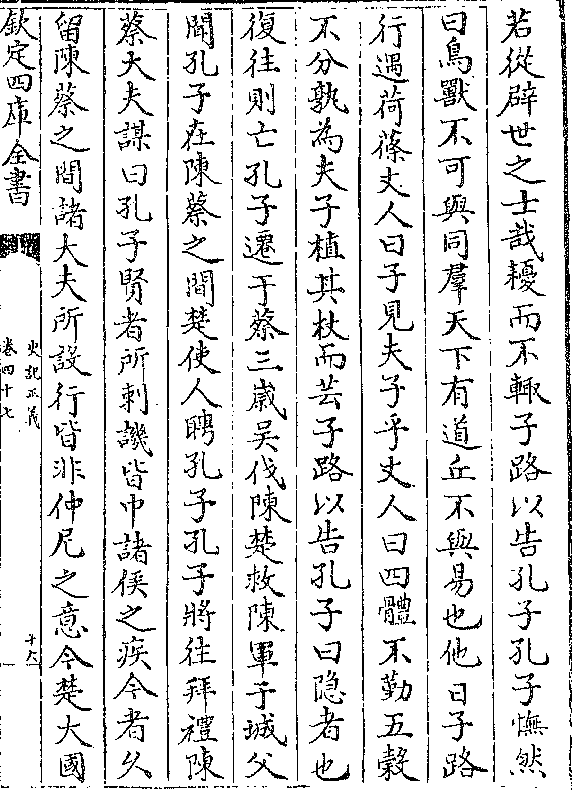 若從辟世之士哉耰而不輟子路以告孔子孔子憮然
曰鳥獸不可與同羣天下有道丘不與易也他日子路
行遇荷蓧丈人曰子見夫子乎丈人曰四體不勤五穀
不分孰為夫子植其杖而芸子路以告孔子曰隐者也
復往則亡孔子遷于蔡三嵗吴伐陳楚救陳軍于城父
聞孔子在陳蔡之間楚使人聘孔子孔子將往拜禮陳
蔡大夫謀曰孔子賢者所刺譏皆中諸侯之疾今者久
留陳蔡之間諸大夫所設行皆非仲尼之意今楚大國
欽定四庫全書
史記正義
卷四十七
十六